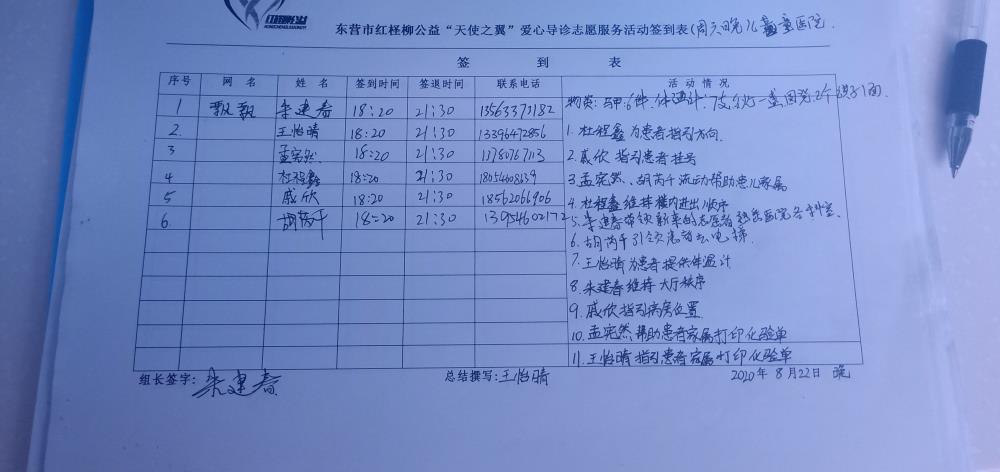 东营市红柽柳公益“天使之翼”爱心导诊志愿服务活动签到表(周六晚儿童医院
签 到 表
序号 网 名 姓 名 签到时间 签退时间 联系电话 活 动 情 况
物资:马甲6件.体温计1支,
1 飘飘 朱建春 18:20 21:30 13563373182
2. 王怡晴 18:20 21:30 13396472856
3 孟宪然 18:20 21:30 13780767113
4 杜程鑫 18:20 21:30
5 戚欣 18:20 21:30 18562066906
6. 胡芮千 18:20 21:30 13954602172
1. 杜程鑫为患者指引方向.
2. 戚欣 指引患者挂号
3. 孟宪然、胡芮千流动帮助患儿家属
4. 杜程鑫维持楼内进出顺序
5. 朱建春带领新来的志愿者熟悉医院各科室.
6. 胡芮千引领患者去电梯.
7. 王怡晴为患者提供体温计
8. 朱建春维持大厅秩序
9. 戚欣指引病房位置.
10. 孟宪然帮助患者家属打印化验单
11. 王怡晴指引患者家属打印化验单
组长签字: 朱建春 总结撰写: 王怡晴 2020年 8月22日 晚